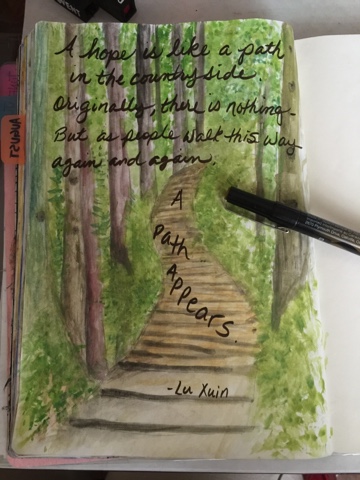 A hope is like a path
in the countryside.
Originally, there is nothing-
But as people walk this way
again and again,
A
Path
Appears.
-Lu Xuin